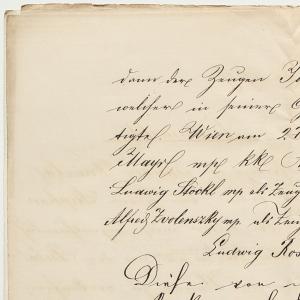 dann der Zeugen
welcher in seiner
tigte. Wien am 2
Mayr mp kk
Ludwig Stöckl mp als Zeug
Alfred Zvolenszky mp. als Zeu
Ludwig Ros
Diese von